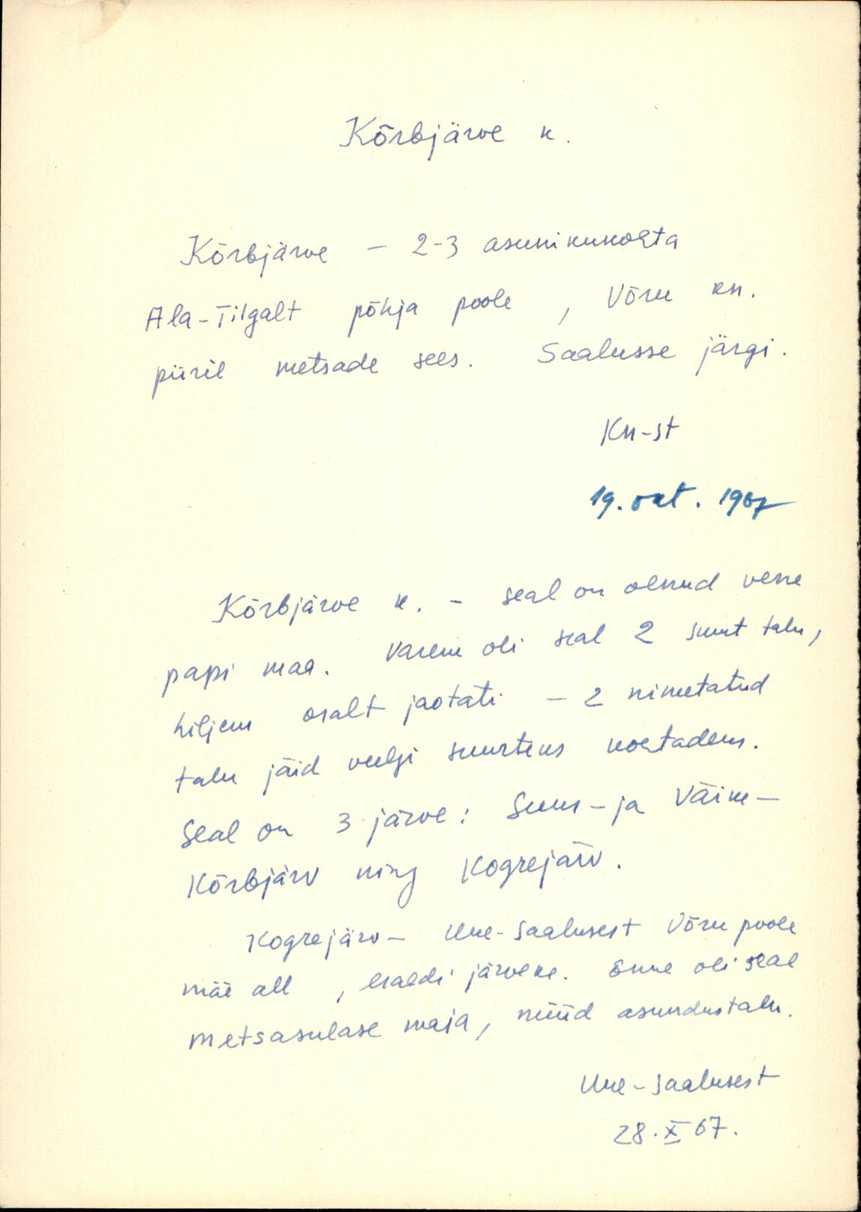 Kõrbjärve k.
Kõrbjärve – 2-3 asunikukohta
Ala-Tilgalt põhja poole, Võru kn.
piiril metsade sees. Saalusse järgi.
Kn-st
19. okt. 1967
Kõrbjärve k. – seal on olnud vene
papi maa. Varem oli seal 2 suurt talu,
hiljem osalt jaotati – 2 nimetatud
talu jäid veelgi suurteks kohtadeks.
Seal on 3 järve: Suur- ja Väike-
Kõrbjärv ning Kogrejärv.
Kogrejärv – Uue-Saalusest Võru poole
mäe all, eraldi järveke. Enne oli seal
metsasulase maja, nüüd asundustalu.
Uue-Saalusest
28.X 67.